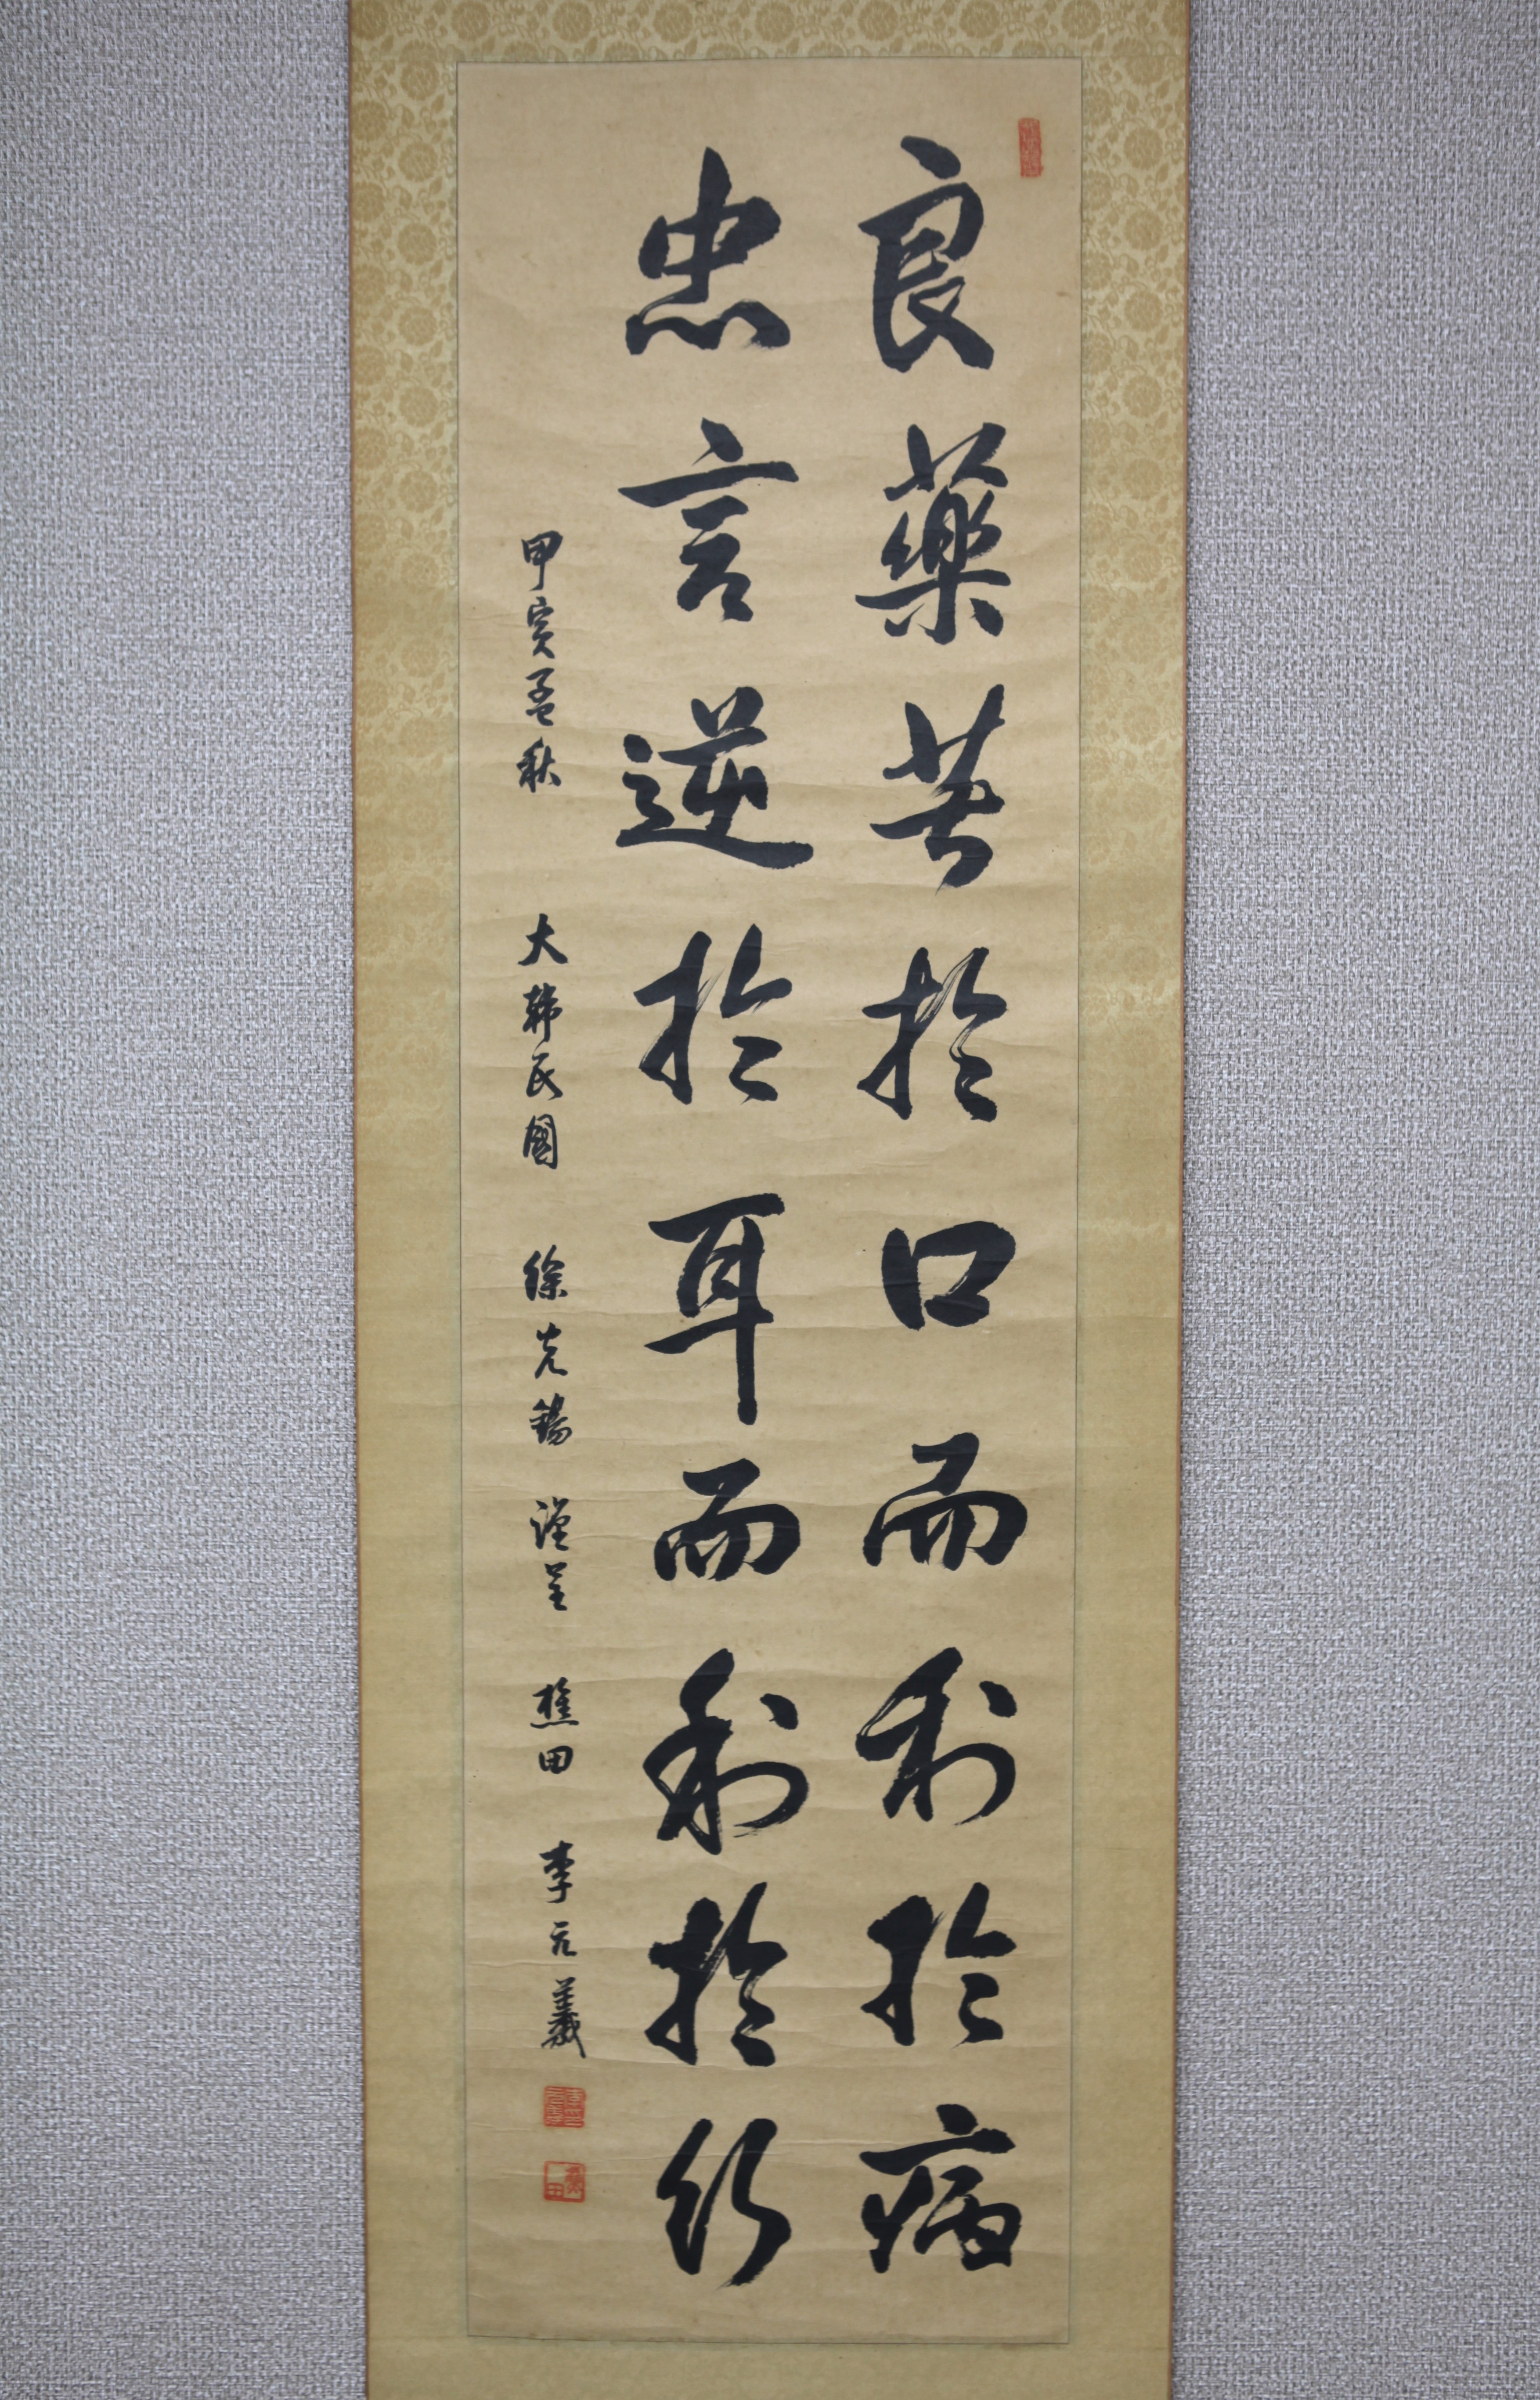 良藥苦於口而利於病
忠言逆於耳而利於行
甲寅孟秋 大韓民國 徐克錫 謹呈 樵田 李元義